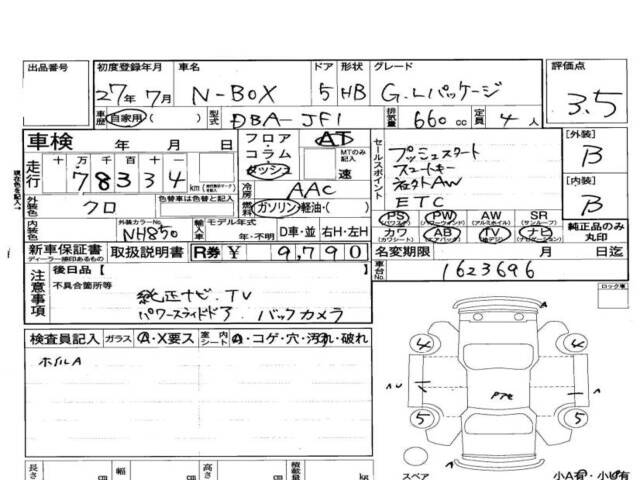 出品番号 初度登録年月 車名 ドア 形状 グレード 評価点
27年 7月 N-BOX 5 HB G.Lパッケージ 3.5
車歴 自家用 ( ) 型式 DBA-JF1 排気量 660 cc 定員 4 人
車検 年 月 日 フロア・コラム・ダッシュ AT MTのみ記入 速
走行 十 万 千 百 十 一
78334 km
セールスポイント
プッシュスタート
スマートキー
AW
ETC
[外装] B
[内装] B
冷房 AAC
燃料 ガソリン・軽油・( )
外装色 クロ 色替車は色替と記入(元色 )
外装カラーNo. NH850 輸入車 モデル年式 年・不明 D車・並 右H・左H
PS(パワステ) PW(パワーウィンドウ) AW(アルミホイル) SR(サンルーフ)
カワ(カワシート) AB(エアバック) TV(地デジ) ナビ(ナビゲーション) 純正品のみ丸印
新車保証書 ディーラー捺印あるもの 取扱説明書 R券 ¥ 9,790 名変期限 月 日迄
車台No. 1623696
注意事項 後日品 [ ]
不具合箇所等
純正ナビ.TV
パワースライドドア. バックカメラ
ロック車
検査員記入 ガラス A・X要ス 室内 シート A・コゲ・穴・汚れ・破れ
ホイルA
A
4 4
5 5
スペア 小A有・小U有
長さ cm 幅 cm 高さ cm 積載量 kg
現在色を記入→